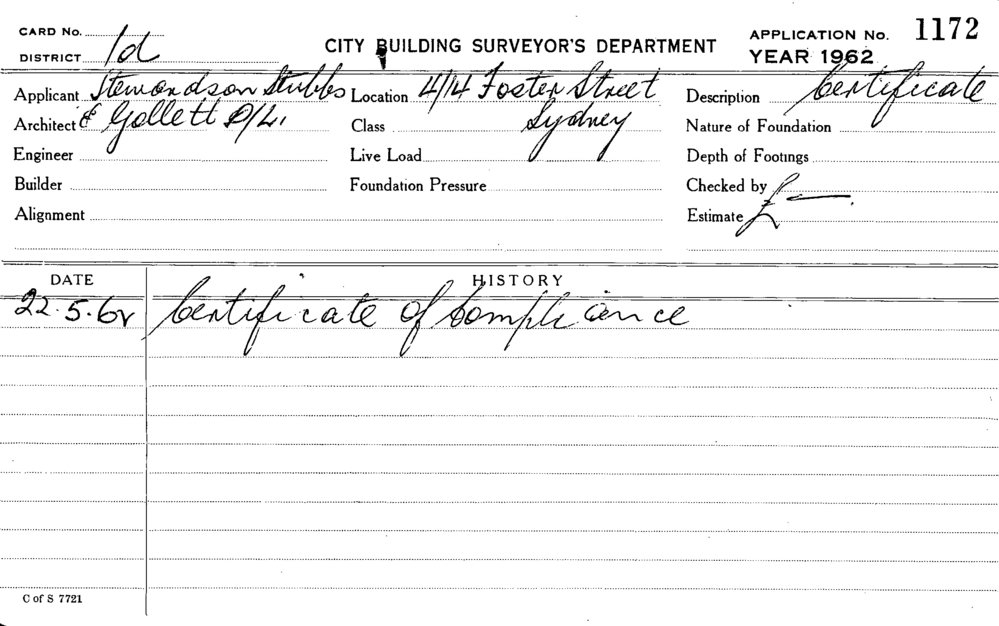 CARD No.
DISTRICT 1d
CITY BUILDING SURVEYOR'S DEPARTMENT
APPLICATION No. 1172
YEAR 1962
Applicant Stemondson Stubbs
Location 4/14 Foster Street
Description Certificate
Architect & Gollett P/L.
Class Sydney
Nature of Foundation
Engineer
Live Load
Depth of Footings
Builder
Foundation Pressure
Checked by
Alignment
Estimate £ —.
DATE HISTORY
22.5.62 Certificate of Compliance
C of S 7721